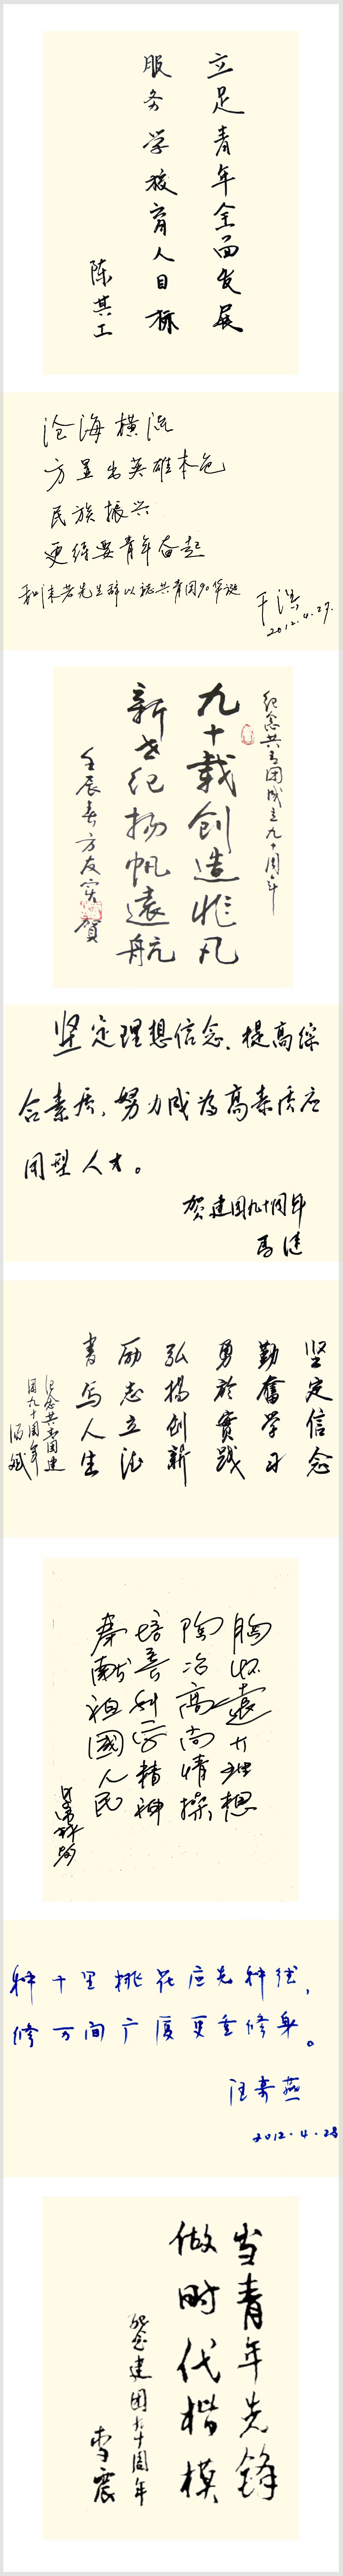 立足青年全面发展
服务学校育人目标
陈其工
沧海横流
方显出英雄本色
民族振兴
更待要青年奋起
和沫若先生辞以誌共青团90华诞
于洪
2012.4.27.
纪念共青团成立九十周年
九十载创造非凡
新世纪扬帆远航
壬辰春方友宝贺
坚定理想信念、提高综
合素质,努力成为高素质应
用型人才。
贺建团九十周年
马健
坚定信念
勤奮学习
勇於實践
弘扬创新
励志立法
書写人生
纪念共青团建
团九十周年
胸怀遠大理想
陶冶高尚情操
培養科学精神
奉献祖國人民
种十里桃花应先种德,
修万间广厦更重修身。
汪寿燕
2012.4.28
当青年先锋
做时代楷模
纪念建团九十周年
李震